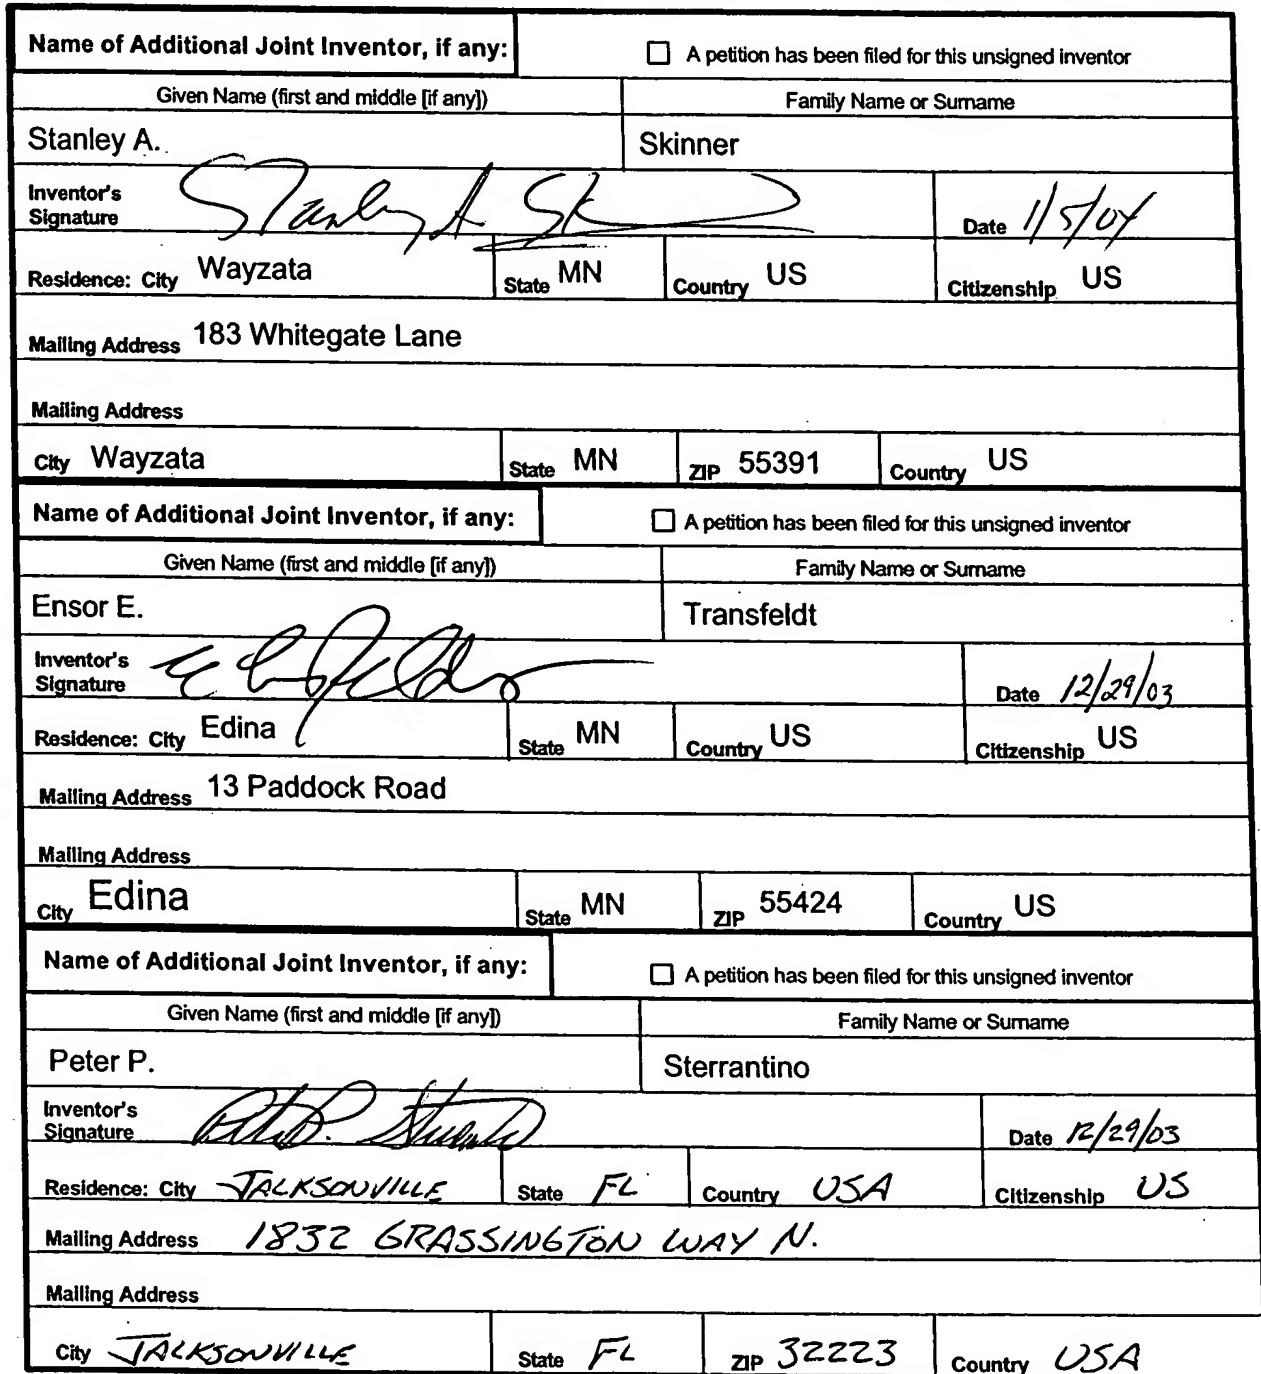 Name of Additional Joint Inventor, if any: A petition has been filed for this unsigned inventor
Given Name (first and middle [if any]) Family Name or Surname
Stanley A. Skinner
Inventor's
Signature Stanley A Sk Date 1/5/04
Residence: City Wayzata State MN Country US Citizenship US
Mailing Address 183 Whitegate Lane
Mailing Address
City Wayzata State MN ZIP 55391 Country US
Name of Additional Joint Inventor, if any: A petition has been filed for this unsigned inventor
Given Name (first and middle [if any]) Family Name or Surname
Ensor E. Transfeldt
Inventor's
Signature Date 12/29/03
Residence: City Edina State MN Country US Citizenship US
Mailing Address 13 Paddock Road
Mailing Address
City Edina State MN ZIP 55424 Country US
Name of Additional Joint Inventor, if any: A petition has been filed for this unsigned inventor
Given Name (first and middle [if any]) Family Name or Surname
Peter P. Sterrantino
Inventor's
Signature Date 12/29/03
Residence: City JACKSONVILLE State FL Country USA Citizenship US
Mailing Address 1832 GRASSINGTON WAY N.
Mailing Address
City JACKSONVILLE State FL ZIP 32223 Country USA